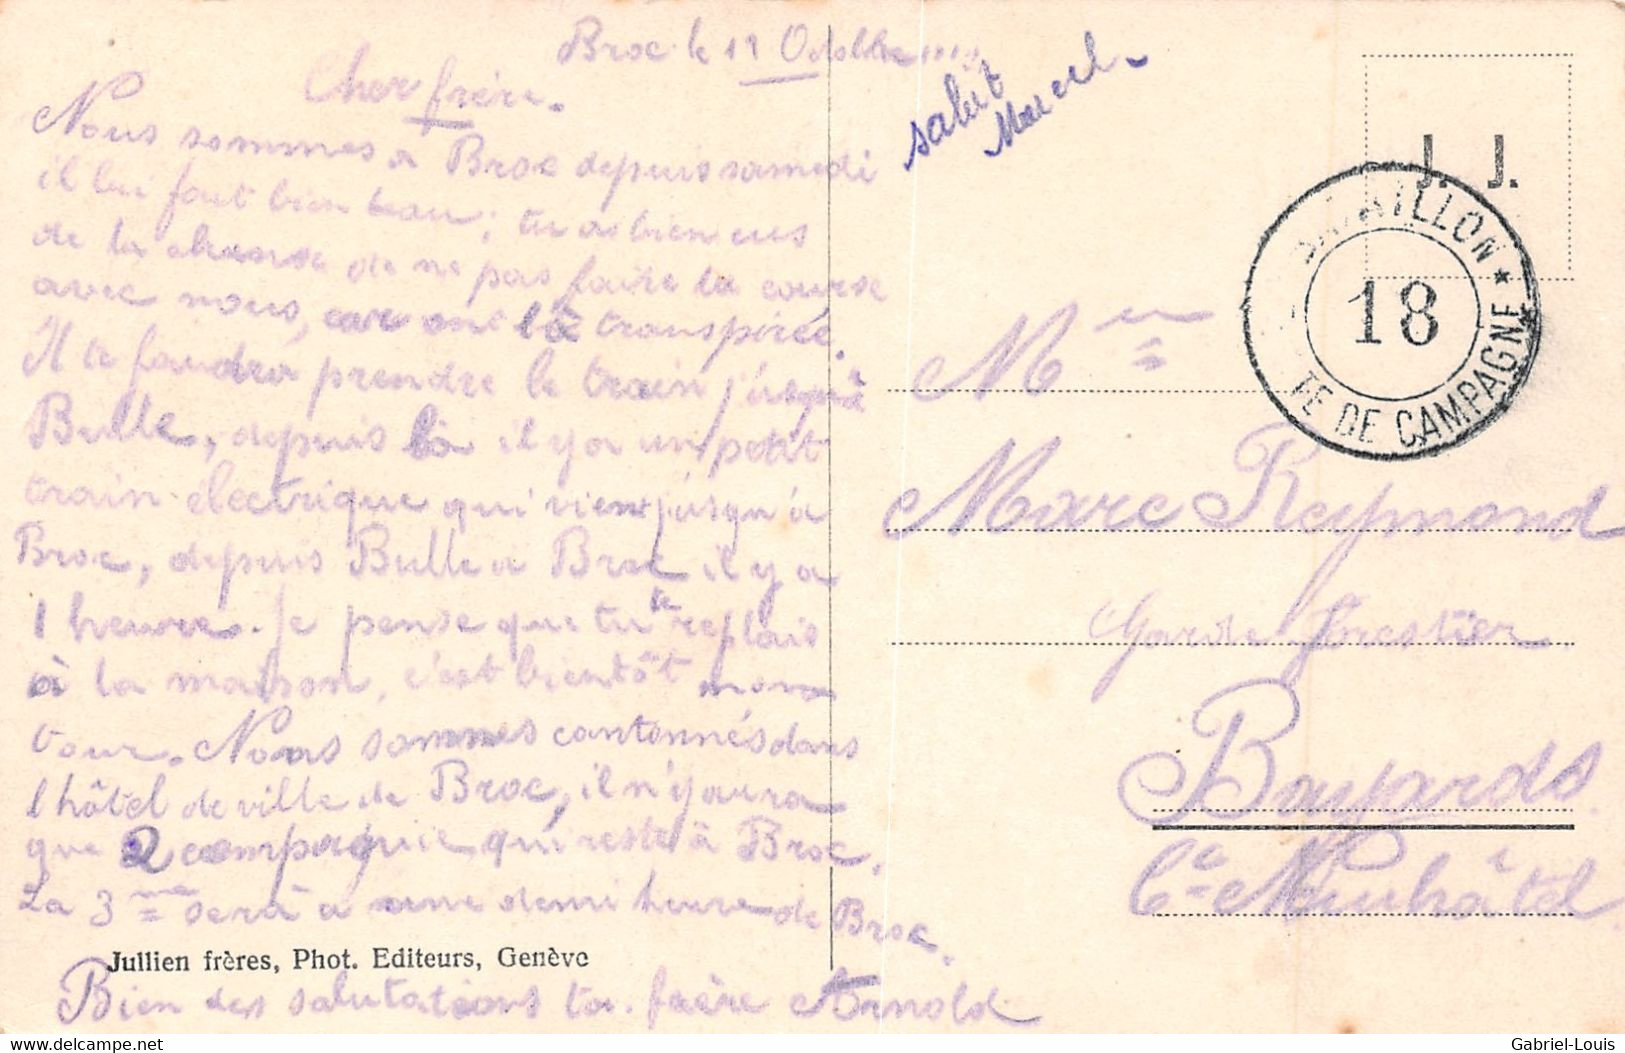 Broc le 11 Octobre
Cher frère.
Nous sommes a Broc depuis samedi
il lui fait bien beau; tu as bien eus
de la chanse de ne pas faire la course
avec nous, car ont là transpirée.
Il te faudra prendre le train j'usquà
Bulle, depuis là il y a un petit
train électrique qui vient j'usqu'à
Broc, depuis Bulle a Broc il y a
1 heure. Je pense que tu te replais
à la maison, c'est bientôt mon
tour. Nous sommes cantonnés dans
l'hôtel de ville de Broc, il n'y aura
que 2 compagnie qui reste à Broc.
La 3me sera à une demi heure de Broc.
Jullien frères, Phot. Editeurs, Genève
Bien des salutations ton frère Arnold
salut
Marcel.
J. J.
BATAILLON
18
TE DE CAMPAGNE
Marc Reymond
Garde forestier
Bayards
Ct Neuchâtel
Gabriel-Louis
delcampe.net